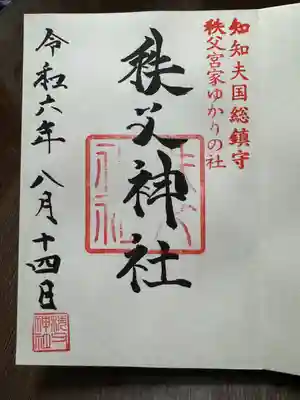 知知夫国総鎮守
秩父宮家ゆかりの社
秩父神社
令和六年 八月 十四日